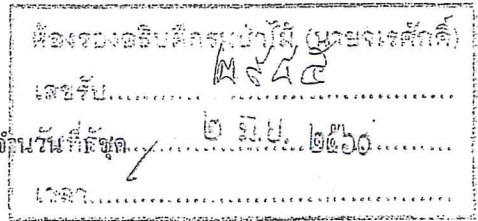 ห้องรองอธิบดีกรมป่าไม้ (นายจเรศักดิ์)
เลขรับ......๒๙๔๕
วันที่ ๒ มิ.ย. ๒๕๖๐
เวลา......